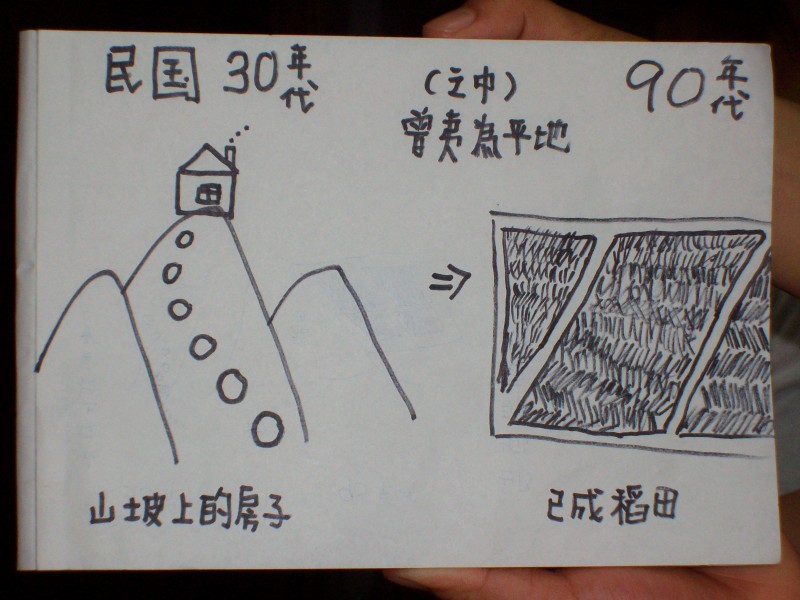 民国 30年代
(之中)
曾夷為平地
90年代
山坡上的房子
已成稻田